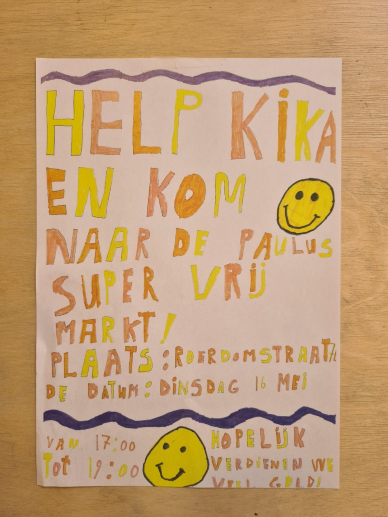 HELP KiKA
EN KOM
NAAR DE PAULUS
SUPER VRIJ
MARKT!
PLAATS: ROERDOMSTRAAT
DE DATUM: DINSDAG 16 MEI
VAN 17:00
Tot 19:00
HOPELIJK
VERDIENEN WE
VEEL GELD!